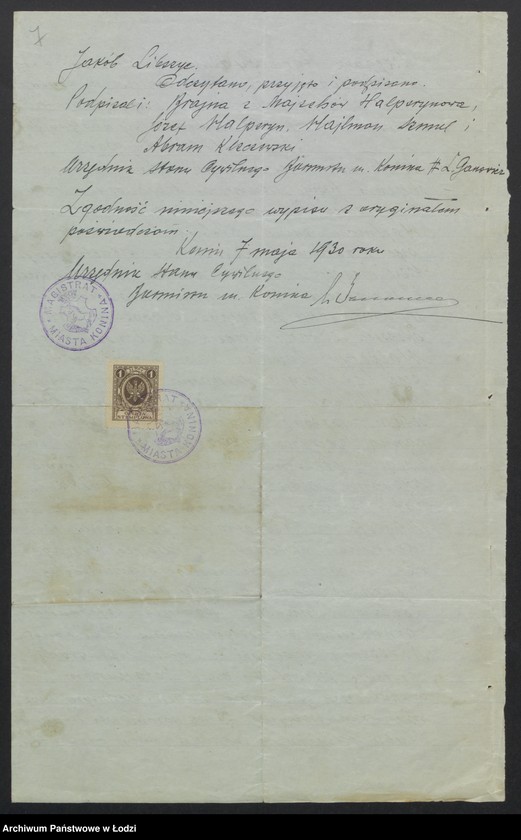 7
Jakób Libszyc.
Odczytano, przyjęto i podpisano.
Podpisali: Brajna z Majerchów Halperynowa,
Józef Halperyn, Majlman Szmul i
Abram Kleczewski
Urzędnik Stanu Cywilnego Burmistrz m. Konina
Zgodność niniejszego wypisu z oryginałem
poświadczam
Konin 7 maja 1930 roku
Urzędnik Stanu Cywilnego
Burmistrz m. Konina
MAGISTRAT MIASTA KONINA
1 1
MAGISTRAT MIASTA KONINA
Archiwum Państwowe w Łodzi